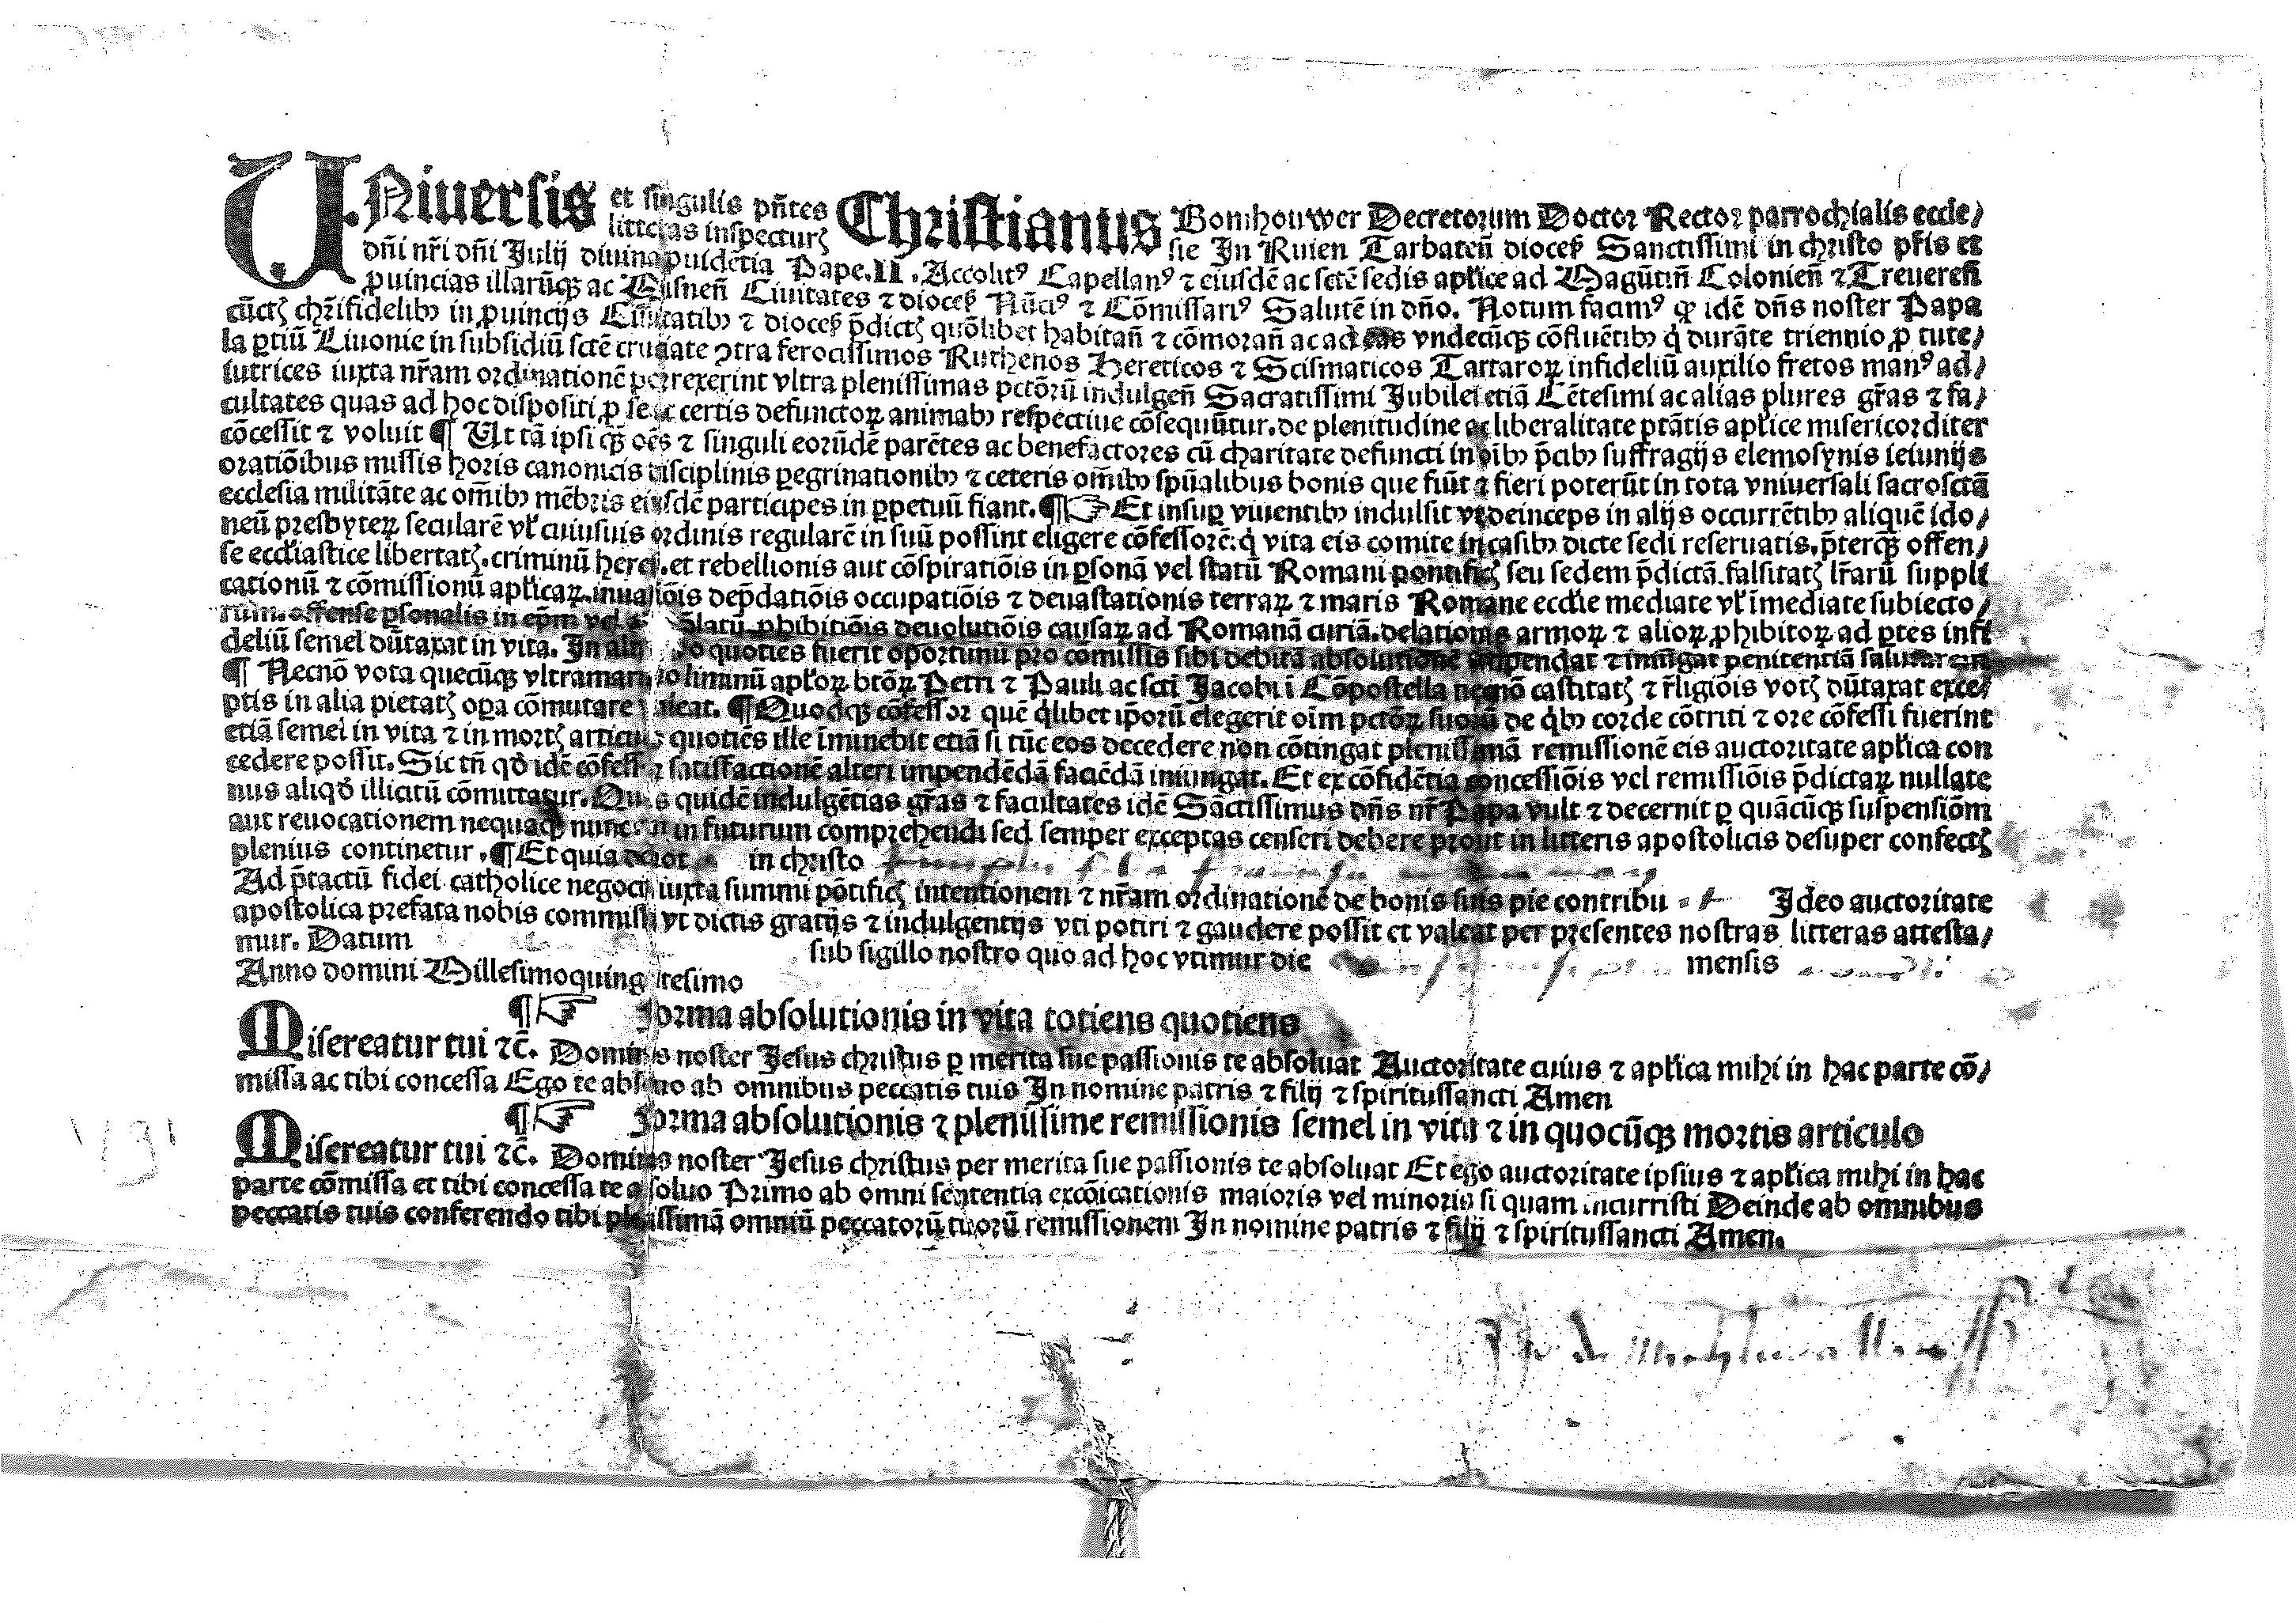 UNiuersis et singulis pñtes Christianus Bomhouwer Decretorum Doctor Rector parrochialis eccle/
litteras inspecturꝫ sie In Ruien Tarbateñ dioceſ Sanctissimi in christo pr̃is et
dñi nr̃i dñi Julij diuina ꝓuidẽtia Pape.II. Accolitꝰ Capellanꝰ ⁊ eiusdẽ ac sctẽ sedis apl̃ice ad Magũtin̄ Colonien̄ ⁊ Treueren̄
ꝓuincias illarũqꝫ ac Misnen̄ Ciuitates ⁊ dioceſ Nũciꝰ ⁊ Cõmissariꝰ Salutẽ in dño. Notum facimꝰ ꝙ idẽ dñs noster Papa
cũctꝫ chr̃ifidelibꝫ in ꝓuincijs Ciuitatibꝫ ⁊ dioceſ p̃dictꝫ quõlibet habitan̄ ⁊ cõmoran̄ ac ad eas vndecũqꝫ cõfluẽtibꝫ q̇ durãte triennio ꝓ tute/
la ꝑtiũ Liuonie in subsidiũ sctẽ cruciate ꝯtra ferocissimos Ruthenos Hereticos ⁊ Scismaticos Tartaroꝝ infideliũ auxilio fretos manꝰ ad/
iutrices iuxta nr̃am ordinationẽ porrexerint vltra plenissimas pctõrũ indulgen̄ Sacratissimi Jubilei etiã Cẽtesimi ac alias plures gr̃as ⁊ fa/
cultates quas ad hoc dispositi ꝓ se ac certis defunctoꝝ animabꝫ respectiue cõsequũtur. de plenitudine ac liberalitate ptãtis apl̃ice misericorditer
cõcessit ⁊ voluit ¶ Vt tã ipsi qꝫ oẽs ⁊ singuli eorũdẽ parẽtes ac benefactores cũ charitate defuncti in oĩbꝫ p̃cibꝫ suffragijs elemosynis ieiunijs
oratiõibus missis horis canonicis disciplinis ꝑegrinationibꝫ ⁊ ceteris om̃ibꝫ spũalibus bonis que fiũt ⁊ fieri poterũt in tota vniuersali sacrosctã
ecclesia militãte ac om̃ibꝫ mẽbris eiusdẽ participes in ꝑpetuũ fiant. ¶☞ Et insuꝑ viuentibꝫ indulsit vt deinceps in alijs occurrẽtibꝫ aliquẽ ido/
neũ presbyteꝝ secularẽ vl̃ cuiusuis ordinis regularẽ in suũ possint eligere cõfessorẽ: q̇ vita eis comite in casibꝫ dicte sedi reseruatis. p̃terqꝫ offen/
se eccl̃iastice libertatꝫ. criminũ heres. et rebellionis aut cõspiratiõis in ꝑsonã vel statũ Romani pontificꝫ seu sedem p̃dictã. falsitatꝫ lr̃arũ suppli
cationũ ⁊ cõmissionũ apl̃icaꝝ. inuasiõis dep̃datiõis occupatiõis ⁊ deuastationis terraꝝ ⁊ maris Romane eccl̃ie mediate vl̃ ĩmediate subiecto/
rum. offense ꝑsonalis in ep̃m vel a Platũ. ꝓhibitiõis deuolutiõis causaꝝ ad Romanã curiã. delationis armoꝝ ⁊ alioꝝ ꝓhibitoꝝ ad ꝑtes infi
deliũ semel dũtaxat in vita. In alijs ꝟo quoties fuerit oportunũ pro cõmissis sibi debitã absolutionẽ impendat ⁊ iniũgat penitentiã salutarem
¶ Necnõ vota quecũqꝫ vltramarina liminũ apl̃oꝝ btõꝝ Petri ⁊ Pauli ac scti Jacobi ĩ Cõpostella necnõ castitatꝫ ⁊ r̃ligiõis votꝫ dũtaxat exce/
ptis in alia pietatꝫ oꝑa cõmutare valeat. ¶ Quodqꝫ cõfessor quẽ q̇libet ip̃orũ elegerit oĩm pctõꝝ suorũ de q̇bꝫ corde cõtriti ⁊ ore cõfessi fuerint
etiã semel in vita ⁊ in mortꝫ articulo quotiẽs ille ĩminebit etiã si tũc eos decedere non cõtingat plenissimã remissionẽ eis auctoritate apl̃ica con
cedere possit. Sic tñ qꝺ idẽ cõfessor satisfactionẽ alteri impendẽdã faciẽdã iniungat. Et ex cõfidẽtia concessiõis vel remissiõis p̃dictaꝝ nullate
nus aliqꝺ illicitũ cõmittatur. Quas quidẽ indulgẽtias gr̃as ⁊ facultates idẽ Sãctissimus dñs nr̃ Papa vult ⁊ decernit ꝑ quãcũqꝫ suspensiõm
aut reuocationem nequaqꝫ nunc in futurum comprehendi sed semper exceptas censeri debere prout in litteris apostolicis desuper confectꝫ
plenius continetur. ¶ Et quia deuot in christo
Ad p̃tactũ fidei catholice negociũ iuxta summi põtificꝫ intentionem ⁊ nr̃am ordinationẽ de bonis suis pie contribu t Ideo auctoritate
apostolica prefata nobis commissa vt dictis gratijs ⁊ indulgentijs vti potiri ⁊ gaudere possit et valeat per presentes nostras litteras attesta/
mur. Datum sub sigillo nostro quo ad hoc vtimur die mensis
Anno domini Millesimoquingẽtesimo
¶☞ Forma absolutionis in vita totiens quotiens
Misereatur tui ⁊c̃. Dominus noster Jesus christus ꝑ merita sue passionis te absoluat Auctoritate cuius ⁊ apl̃ica mihi in hac parte cõ/
missa ac tibi concessa Ego te absoluo ab omnibus peccatis tuis In nomine patris ⁊ filij ⁊ spiritussancti Amen
¶☞ Forma absolutionis ⁊ plenissime remissionis semel in vita ⁊ in quocũqꝫ mortis articulo
Misereatur tui ⁊c̃. Dominus noster Jesus christus per merita sue passionis te absoluat Et ego auctoritate ipsius ⁊ apl̃ica mihi in hac
parte cõmissa et tibi concessa te absoluo Primo ab omni sententia excõicationis maioris vel minoris si quam incurristi Deinde ab omnibus
peccatis tuis conferendo tibi plenissimã omniũ peccatorũ tuorũ remissionem In nomine patris ⁊ filij ⁊ spiritussancti Amen.